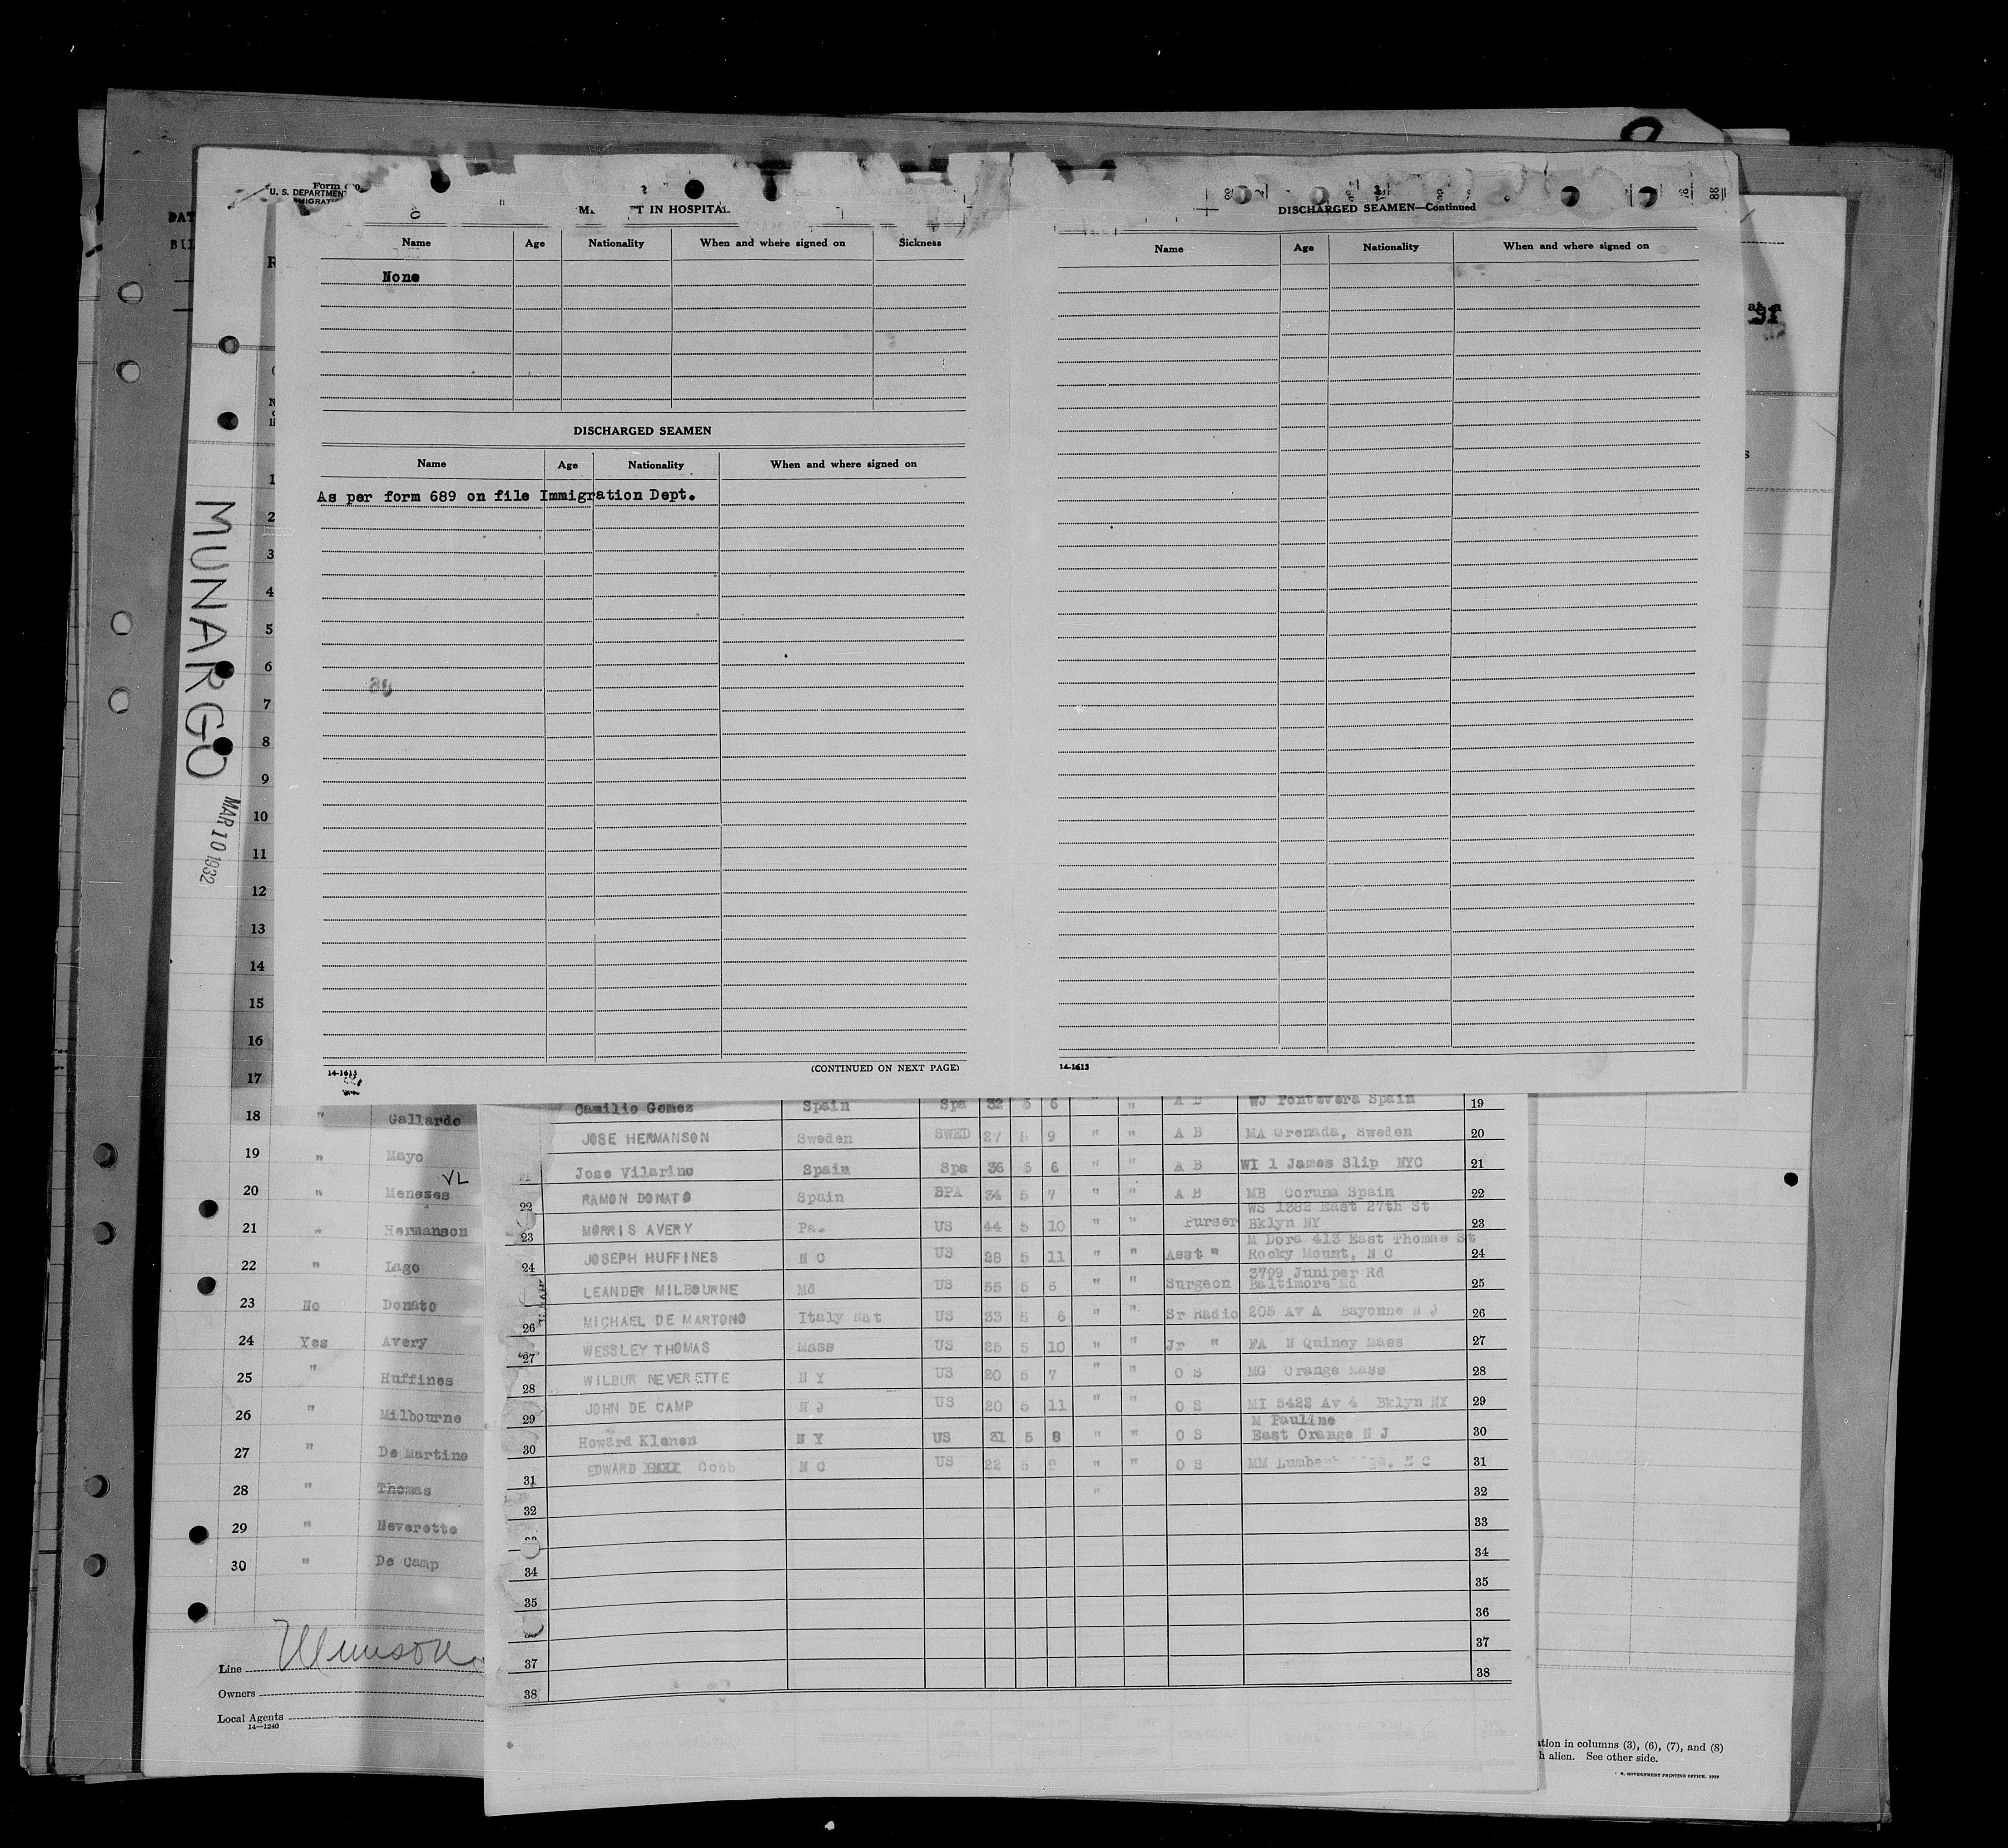 U. S. DEPARTMENT
IN HOSPITAL
Name Age Nationality When and where signed on Sickness
None
DISCHARGED SEAMEN
Name Age Nationality When and where signed on
As per form 689 on file Immigration Dept.
14-1613
(CONTINUED ON NEXT PAGE)
DISCHARGED SEAMEN—Continued
Name Age Nationality When and where signed on
14-1613
MUNARGO
MAR 10 1932
1
2
3
4
5
6
7
8
9
10
11
12
13
14
15
16
17
18 " Gallardo
19 " Mayo
VL
20 " Menezes
21 " Hermanson
22 " Lago
23 No Donato
24 Yes Avery
25 " Huffines
26 " Milbourne
27 " De Martino
28 " Thomas
29 " Neverette
30 " De Camp
Line Munson
Owners
Local Agents
14—1240
Camilio Gomez Spain Spa 32 5 6 " " A B WJ Pontevera Spain 19
JOSE HERMANSON Sweden SWED 27 5 9 " " A B MA Grenada, Sweden 20
Jose Vilarino Spain Spa 36 5 6 " " A B WI 1 James Slip NYC 21
22 RAMON DONATO Spain SPA 34 5 7 " " A B MB Coruna Spain 22
WS 1382 East 27th St
23 MORRIS AVERY Pa. US 44 5 10 " " Purser Bklyn NY 23
M Dora 413 East Thomas St
24 JOSEPH HUFFINES N C US 28 5 11 " " Asst " Rocky Mount, N C 24
3799 Juniper Rd
LEANDER MILBOURNE Md US 55 5 6 " " Surgeon Baltimore Md 25
26 MICHAEL DE MARTONO Italy Nat US 33 5 6 " " Sr Radio 205 Av A Bayonne N J 26
27 WESSLEY THOMAS Mass US 25 5 10 " " Jr " FA N Quincy Mass 27
28 WILBUR NEVERETTE N Y US 20 5 7 " " O S MG Orange Mass 28
29 JOHN DE CAMP N J US 20 5 11 " " O S MI 5422 Av 4 Bklyn NY 29
M Pauline
30 Howard Klenen N Y US 31 5 8 " " O S East Orange N J 30
31 EDWARD Cobb N C US 22 5 9 " " O S MM 31
32 " 32
33
34 34
35 35
36
37 37
38 38
ation in columns (3), (6), (7), and (8)
h alien. See other side.
GOVERNMENT PRINTING OFFICE